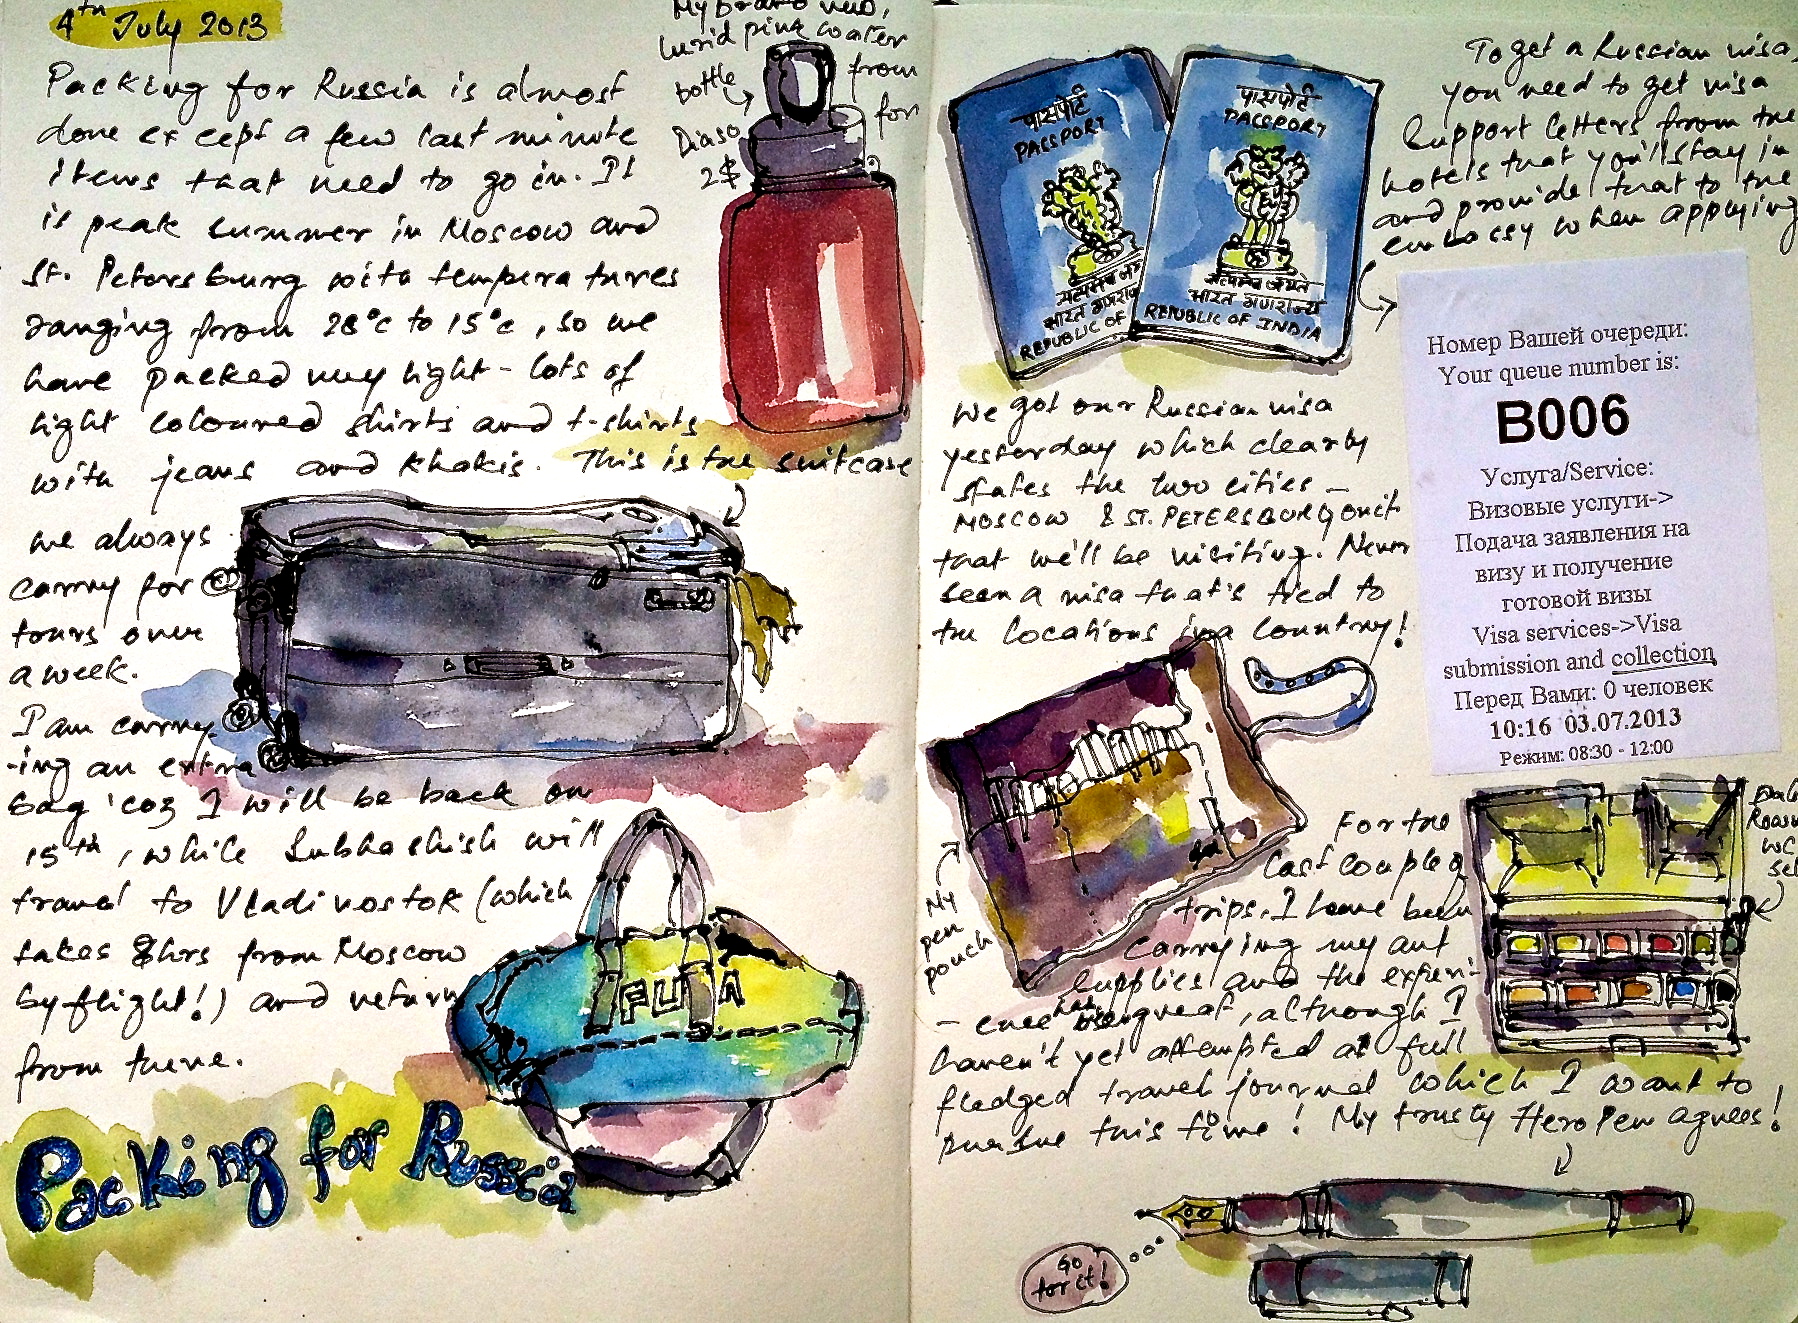 4th July 2013
Packing for Russia is almost
done except a few last minute
items that need to go in. It
is peak summer in Moscow and
St. Petersburg with temperatures
ranging from 28°c to 15°c, so we
have packed very light - lots of
light coloured shirts and t-shirts
with jeans and khakis. This is the suitcase
we always
carry for
tours over
a week.
I am carry
-ing an extra
bag 'coz I will be back on
15th, while Subhashish will
travel to Vladivostok (which
takes 8hrs from Moscow
by flight!) and return
from there.
Packing for Russia
My brand new,
lurid pink water
bottle from
Diaso for
2$
FULA
पासपोर्ट
PASSPORT
सत्यमेव
भारत गणराज्य
REPUBLIC OF
पासपोर्ट
PASSPORT
सत्यमेव जयते
भारत गणराज्य
REPUBLIC OF INDIA
To get a Russian visa,
you need to get visa
support letters from the
hotels that you'll stay in
and provide that to the
embassy when applying
Номер Вашей очереди:
Your queue number is:
B006
Услуга/Service:
Визовые услуги->
Подача заявления на
визу и получение
готовой визы
Visa services->Visa
submission and collection
Перед Вами: 0 человек
10:16 03.07.2013
Режим: 08:30 - 12:00
We got our Russian visa
yesterday which clearly
states the two cities -
MOSCOW & ST. PETERSBURG on it
that we'll be visiting. Never
seen a visa that's tied to
the locations in a country!
My
pen
pouch
For the
last couple of
trips, I have been
carrying my art
supplies and the experi-
- ence has been great, although I
haven't yet attempted a full
fledged travel journal which I want to
pursue this time! My trusty Hero Pen agrees!
WC
set
Go
for it!